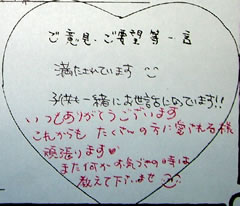 ご意見・ご要望等一言
満たされています
子供も一緒にお世話になっています!!
いつもありがとうございます
これからも たくさんの方に愛される様
頑張ります♥
また何かお気づきの時は
教えて下さいませ